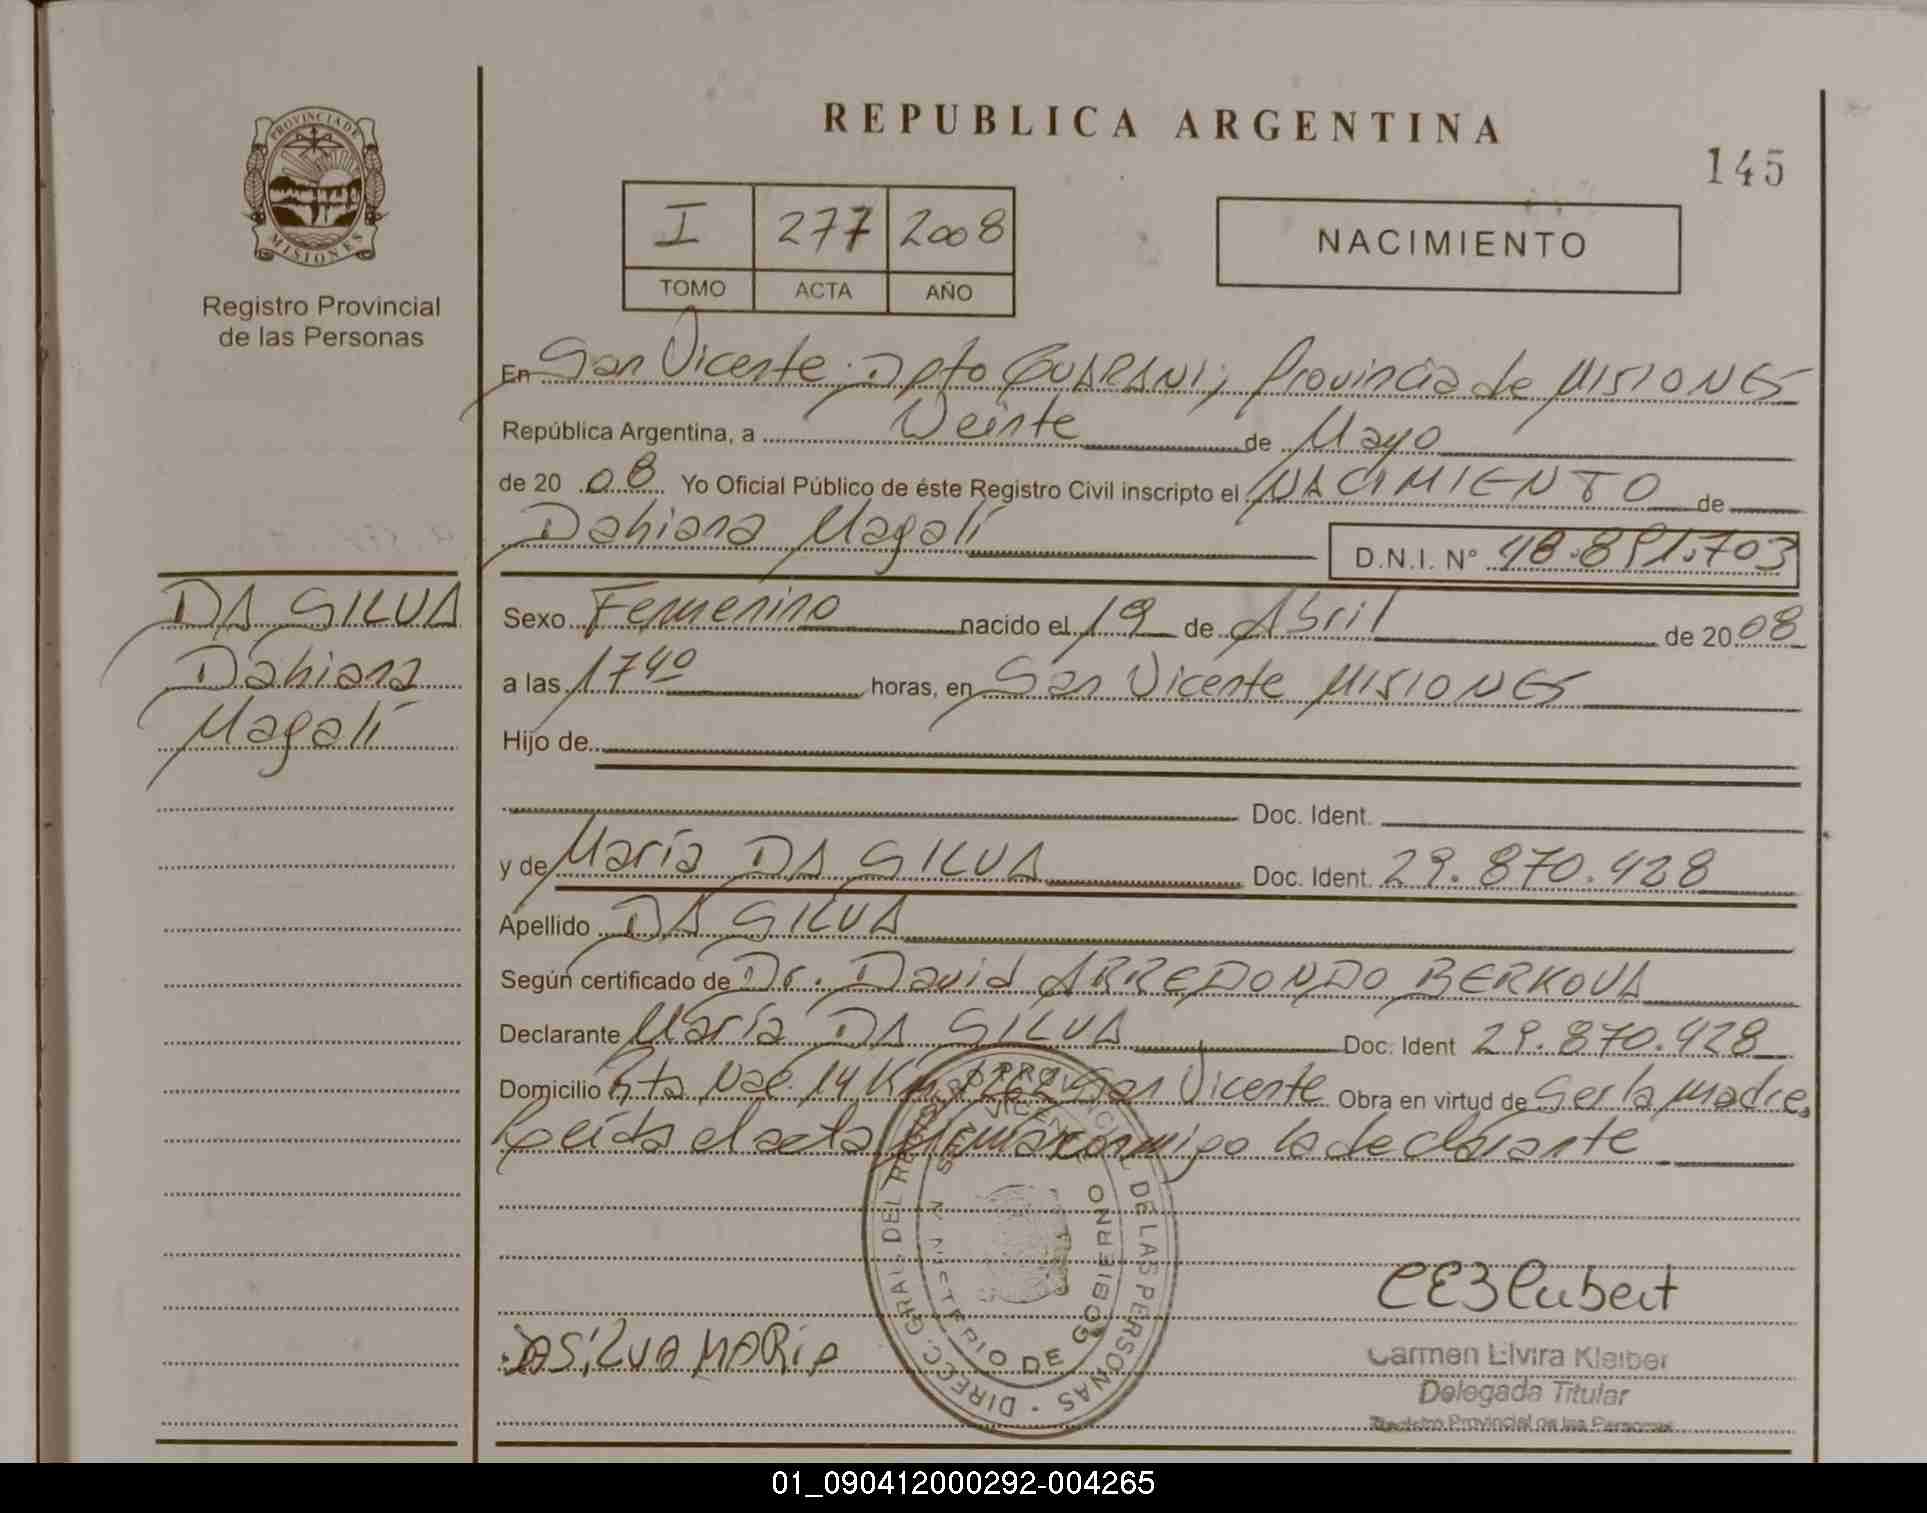 PROVINCIA DE
MISIONES
Registro Provincial
de las Personas
REPUBLICA ARGENTINA
145
I 277 2008
TOMO ACTA AÑO
NACIMIENTO
En San Vicente Dpto GUARANI, Provincia de MISIONES
República Argentina, a Veinte de Mayo
de 20 08 Yo Oficial Público de éste Registro Civil inscripto el NACIMIENTO de
Dahiana Magalí D.N.I. Nº 48.891.703
DA SILVA
Dahiana
Magalí
Sexo Femenino nacido el 19 de Abril de 2008
a las 17 40 horas, en San Vicente MISIONES
Hijo de
Doc. Ident.
y de María DA SILVA Doc. Ident. 29.870.428
Apellido DA SILVA
Según certificado de Dr. David ARREDONDO BERKOVA
Declarante María DA SILVA Doc. Ident 29.870.428
Domicilio Rta Nac. 14 Km 1262 San Vicente Obra en virtud de Ser la madre.
Leída el acta firma conmigo la declarante
DIRECC. GRAL. DEL REGISTRO PROVINCIAL DE LAS PERSONAS
SAN VICENTE
MINISTERIO DE GOBIERNO
DASILVA MARIA
Carmen Elvira Kleiber
Delegada Titular
Registro Provincial de las Personas
01_090412000292-004265